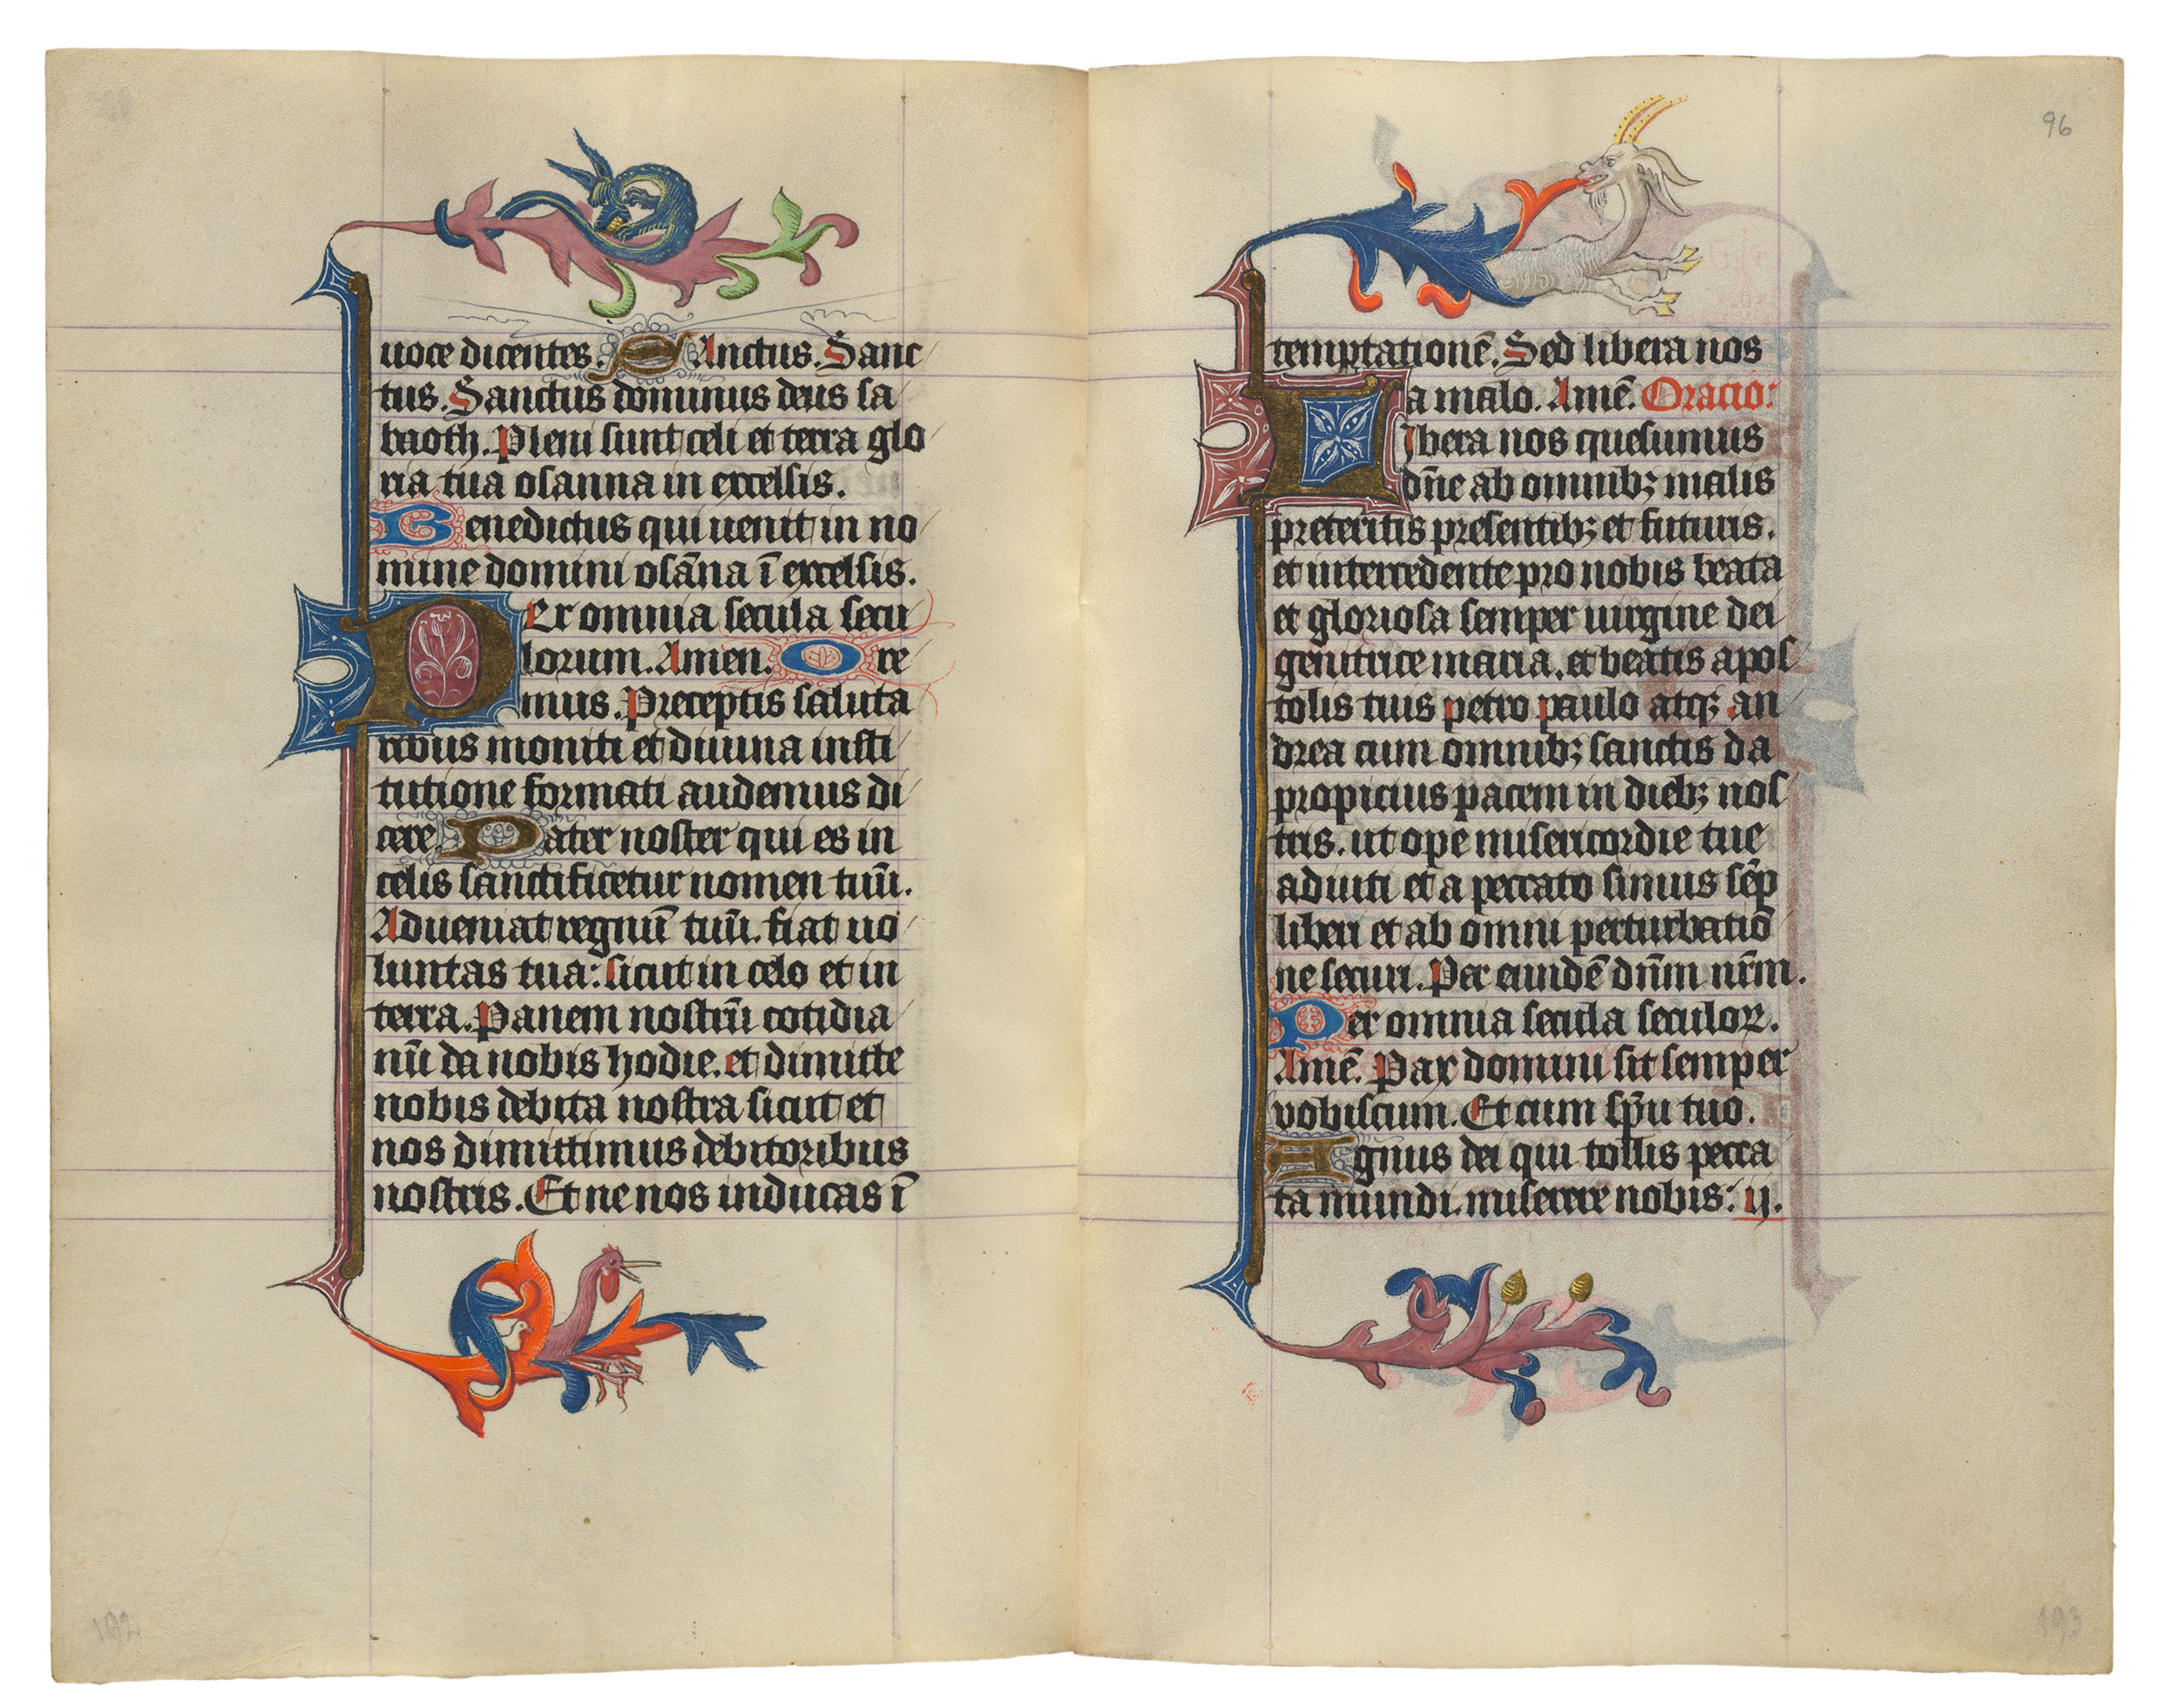 uoce dicentes. SAnctus. Sanc
tus. Sanctus dominus deus sa
baoth. Pleni sunt celi et terra glo
ria tua osanna in excelsis.
Benedictus qui uenit in no
mine domini osãna ĩ excelsis.
PEr omnia secula secu
lorum. Amen. Ore
mus. Preceptis saluta
ribus moniti et diuina insti
tutione formati audemus di
cere. Pater noster qui es in
celis sanctificetur nomen tuũ.
Adueniat regnũ tuũ. fiat uo
luntas tua: sicut in celo et in
terra. Panem nostrũ cotidia
nũ da nobis hodie. et dimitte
nobis debita nostra sicut et
nos dimittimus debitoribus
nostris. Et ne nos inducas ĩ
192
96
temptationẽ. Sed libera nos
a malo. Amẽ. Oracio:
LIbera nos quesumus
dñe ab omnibꝫ malis
preteritis presentibꝫ et futuris.
et intercedente pro nobis beata
et gloriosa semper uirgine dei
genitrice maria. et beatis apos
tolis tuis petro paulo atqꝫ an
drea cum omnibꝫ sanctis da
propicius pacem in diebꝫ nos
tris. ut ope misericordie tue
adiuti et a peccato simus sẽp
liberi et ab omni perturbatiõ
ne securi. Per eundẽ dñm nr̃m.
Per omnia secula seculoꝝ.
Amẽ. Pax domini sit semper
vobiscum. Et cum sp̃u tuo.
Agnus dei qui tollis pecca
ta mundi. miserere nobis: ij.
193